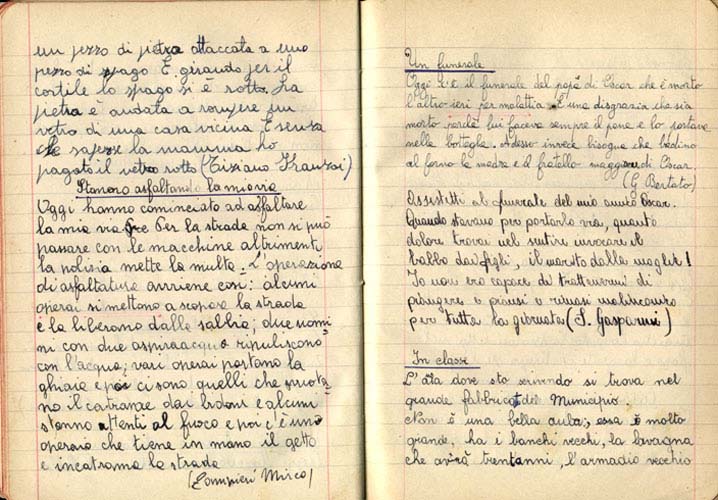 un pezzo di pietra attaccata a uno
pezzo di spago E girando per il
cortile lo spago si è rotto. La
pietra è andata a rompere un
vetro di una casa vicina E senza
che sapesse la mamma ho
pagato il vetro rotto (Tiziano
Stanno asfaltando la mia via
Oggi hanno cominciato ad asfaltare
la mia via Per la strada non si può
passare con le macchine altrimenti
la polizia mette la multa. L'operazione
di asfaltatura avviene così: alcuni
operai si mettono a scopare la strada
e la liberano dalla sabbia; due uomi
ni con due ripuliscono
con l'acqua; vari operai portano la
ghiaia e poi ci sono quelli che
no il catrame dai bidoni e alcuni
stanno attenti al fuoco e poi c'è uno
operaio che tiene in mano il getto
e incatrama la strada
Mirco)
Un funerale
Oggi c'è il funerale del papà di Oscar che è morto
l'altro ieri per malattia. È una disgrazia che sia
morto perchè lui faceva sempre il pane e lo portava
nella bottega. Adesso invece bisogna che badino
al forno la madre e il fratello maggiore di Oscar.
(G. Bertato)
Assistetti al funerale del mio amico Oscar.
Quando stavano per portarlo via, quanto
dolore trovai nel sentire invocare il
babbo dai figli, il marito dalla moglie!
Io non ero capace di trattenermi di
piangere e piansi e rimasi
per tutta la giornata (S. Gasparini)
In classe
L'aula dove sto scrivendo si trova nel
grande fabbricato del Municipio.
Non è una bella aula; essa è molto
grande, ha i banchi vecchi, la lavagna
che avrà trent'anni, l'armadio vecchio